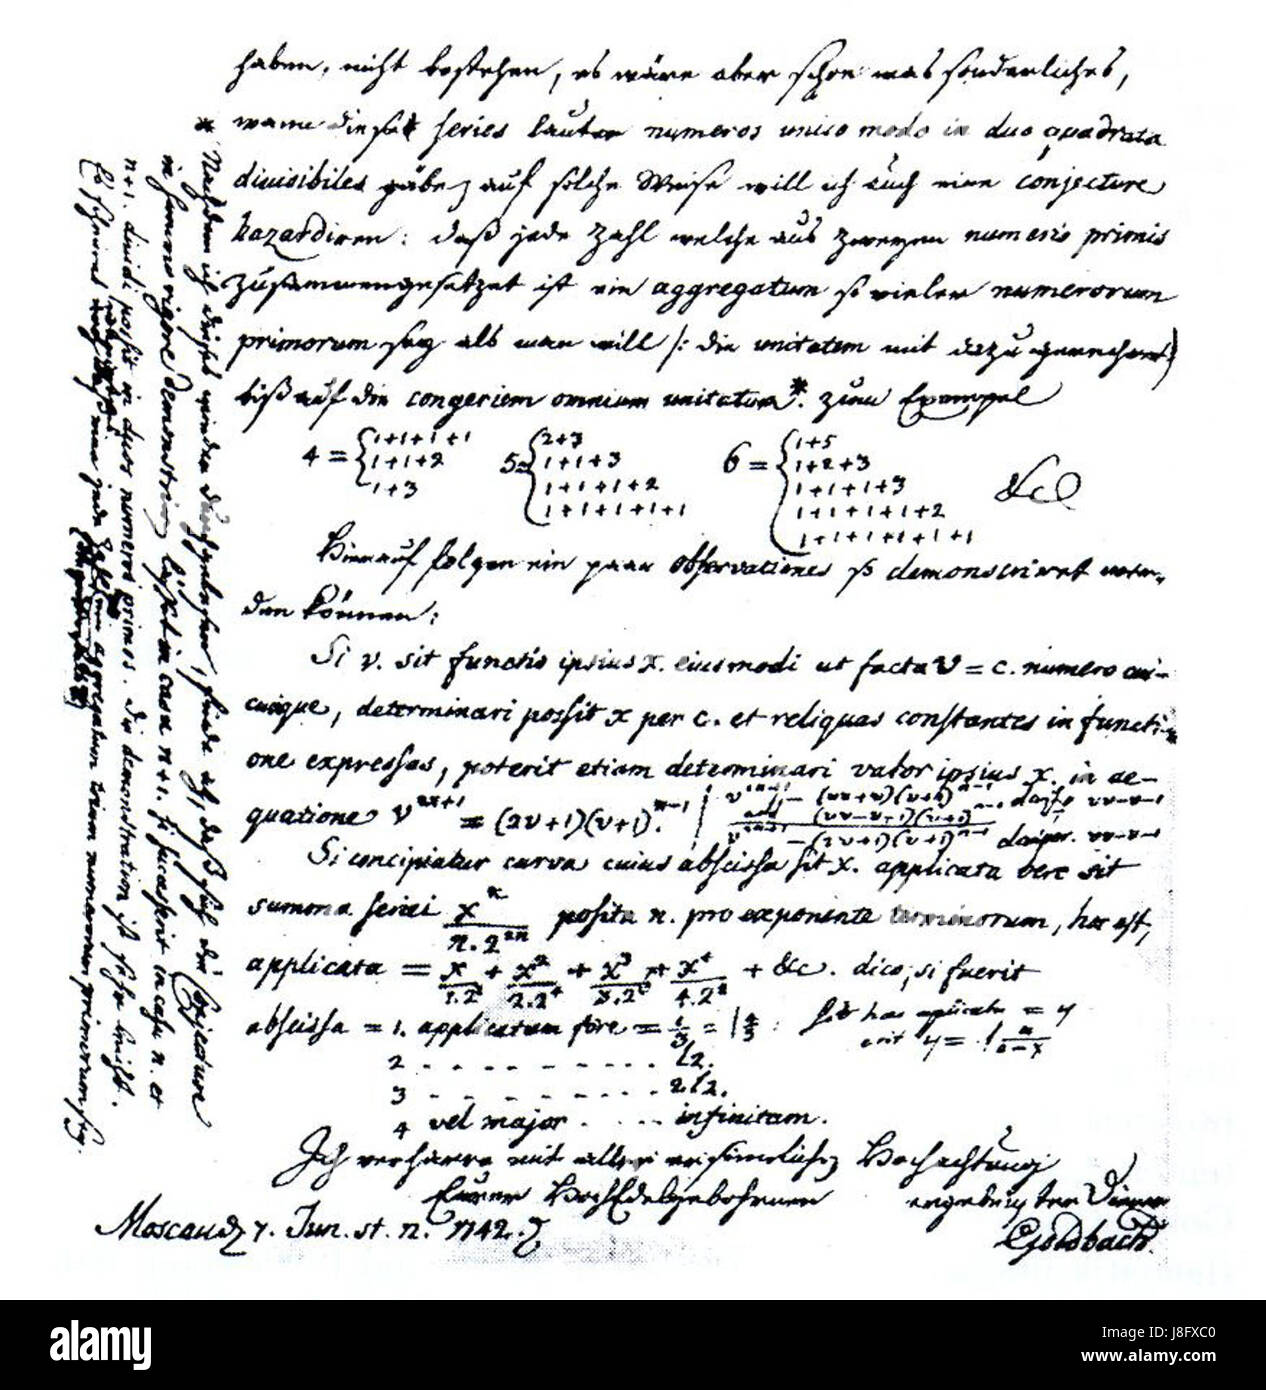 haben, nicht bestehen, es wäre aber schon was sonderliches,
wann diese series lauter numeros unico modo in duo quadrata
divisibiles gäbe, auf solche Weise will ich auch eine conjecture
hazardiren: daß jede Zahl welche aus zweyen numeris primis
zusammengesetzet ist ein aggregatum so vieler numerorum
primorum sey als man will /: die unitatem mit dazu gerechnet
biß auf die congeriem omnium unitatum*. zum Exempel
4 = { 1+1+1+1
1+1+2
1+3
5 = { 2+3
1+1+3
1+1+1+2
1+1+1+1+1
6 = { 1+5
1+2+3
1+1+1+3
1+1+1+1+2
1+1+1+1+1+1
&c
Hierauf folgen ein paar observationes so demonstriret wer-
den können:
Si v. sit functio ipsius x. eiusmodi ut facta v = c. numero cui-
cunque, determinari possit x per c. et reliquas constantes in functi-
one expressas, poterit etiam determinari valor ipsius x. in ae-
quatione v^{2n+1} = (2v+1)(v+1)^{n-1}
Si concipiatur curva cuius abscissa sit x. applicata vero sit
summa seriei x^n/(n.2^{2n}) posita n. pro exponente terminorum, hoc est,
applicata = x/(1.2^2) + x^2/(2.2^4) + x^3/(3.2^6) + x^4/(4.2^8) + &c. dico, si fuerit
abscissa = 1. applicatam fore = = l 4/3
2 . . . . . . . . . . l2.
3 . . . . . . . . . . 2l2.
4 vel major . . . . infinitam.
Ich verharre mit aller Hochachtung
Eurer HochEdelgebohrnen ergebenster Diener
Moscau d. 7. Jun. st. n. 1742. Goldbach.
* Nachdem ich dieses wieder durchgelesen, finde ich, daß sich die Conjecture
in summo rigore demonstriren lässet in casu n+1. si successerit in casu n. et
n+1. dividi possit in duos numeros primos. die demonstration ist sehr leicht.
Es scheinet daß eine jede Zahl ein aggregatum trium numerorum primorum sey.
alamy
Image ID: J8FXC0
www.alamy.com